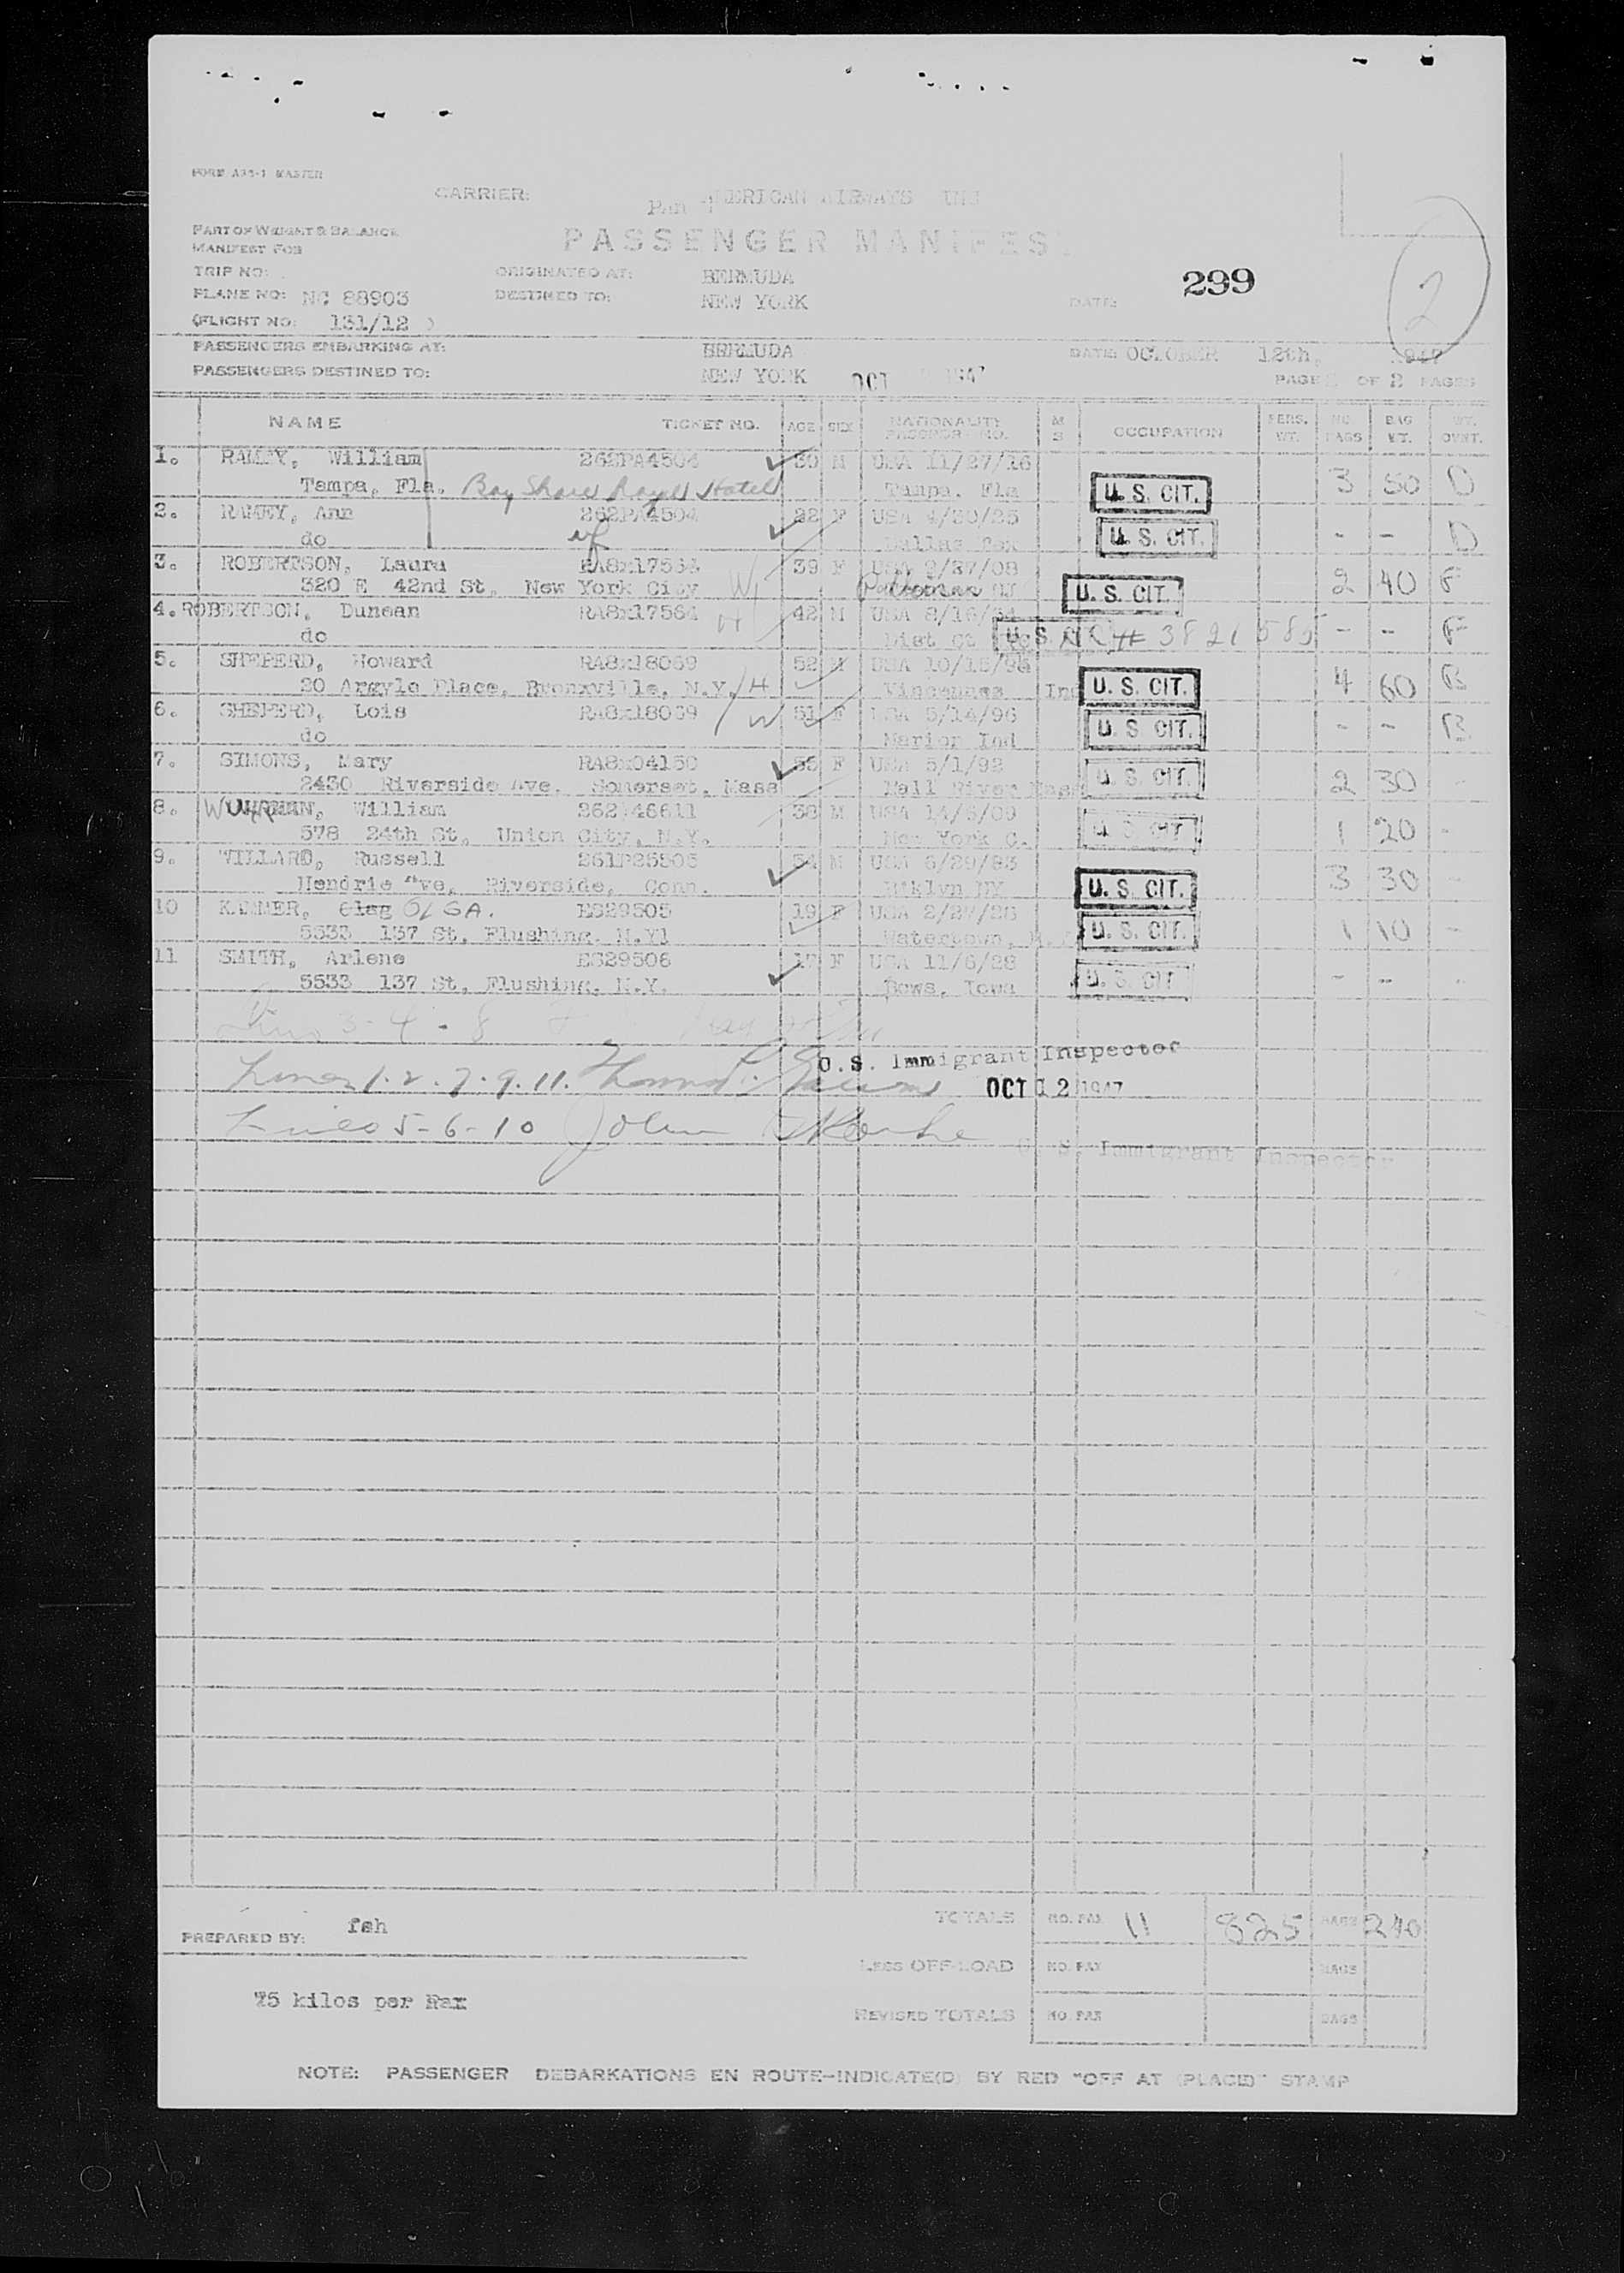 FORM A35-1 MASTER
CARRIER: PAN AMERICAN AIRWAYS INC
PART OF WEIGHT & BALANCE
MANIFEST FOR
PASSENGER MANIFEST
TRIP NO: ORIGINATED AT: BERMUDA 299 2
PLANE NO: NC 88903 DESTINED TO: NEW YORK DATE:
(FLIGHT NO: 131/12 )
PASSENGERS EMBARKING AT: BERMUDA DATE: OCTOBER 12th, 1947
PASSENGERS DESTINED TO: NEW YORK OCT 1947 PAGE OF 2 PAGES
NAME TICKET NO. AGE SEX NATIONALITY PASSPORT NO. M S OCCUPATION PERS. WT. NO. BAGS BAG WT. WT. OVWT.
1. RAMEY, William 262PA4504 30 M USA 11/27/16
Tampa, Fla. Bay Shore Royal Hotel Tampa. Fla U. S. CIT. 3 50 D
2. RAMEY, Ann 262PA4504 22 F USA 4/30/25
do wf Dallas Tex U. S. CIT. - - D
3. ROBERTSON, Laura RA8x17564 39 F USA 9/27/08
320 E 42nd St, New York City W Paterson NJ U. S. CIT. 2 40 F
4. ROBERTSON, Duncan RA8x17564 42 M USA 8/16/34
do H Dist Ct U. S. # 3821585 - - F
5. SHEPERD, Howard RA8x18069 52 M USA 10/15/94
20 Argyle Place, Bronxville, N.Y. H Vincennes Ind U. S. CIT. 4 60 B
6. SHEPERD, Lois RA8x18069 W 51 F USA 5/14/96
do Marion Ind U. S. CIT. - - B
7. SIMONS, Mary RA8x04150 55 F USA 5/1/92
2430 Riverside Ave. Somerset, Mass Fall River Mass U. S. CIT. 2 30 -
8. William 262 46611 38 M USA
578 24th St, Union City, N.Y. New York C. U. S. CIT 1 20 -
9. WILLARD, Russell 261P26505 54 M USA 6/29/93
Hendrie Ave, Riverside, Conn. Bklyn NY U. S. CIT. 3 30 -
10 KEMMER, Olag OLGA. ES29505 19 F USA
5533 137 St, Flushing, N.Y1 Watertown, U. S. CIT. 1 10 -
11 SMITH, Arlene ES29506 17 F USA 11/6/28
5533 137 St, Flushing, N.Y. Dows, Iowa U. S. CIT - - -
Lines 3-4-8
U. S. Immigrant Inspector
Lines 1.2.7.9.11. OCT 12 1947
Lines 5-6-10 John
U. S. Immigrant Inspector
PREPARED BY: feh TOTALS NO. PAX 11 825 BAGS 240
LESS OFF-LOAD NO. PAX BAGS
75 kilos per Pax REVISED TOTALS NO. PAX BAGS
NOTE: PASSENGER DEBARKATIONS EN ROUTE-INDICATE(D) BY RED "OFF AT (PLACE)" STAMP